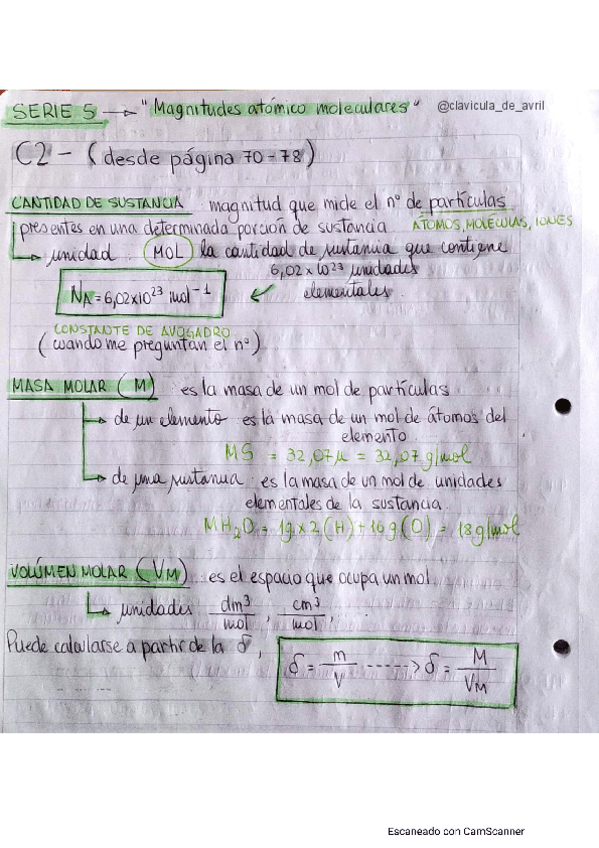 SERIE 5 → "Magnitudes atómico moleculares" @clavicula_de_avril
C2 - (desde página 70-78)
CANTIDAD DE SUSTANCIA magnitud que mide el nº de partículas
presentes en una determinada porción de sustancia. ÁTOMOS, MOLÉCULAS, IONES
unidad: MOL la cantidad de sustancia que contiene
6,02x10²³ unidades
elementales.
NA = 6,02x10²³ mol⁻¹
CONSTANTE DE AVOGADRO
(cuando me preguntan el nº)
MASA MOLAR (M) es la masa de un mol de partículas
de un elemento es la masa de un mol de átomos del
elemento.
MS = 32,07 u = 32,07 g/mol
de una sustancia es la masa de un mol de unidades
elementales de la sustancia.
MH₂O = 1g x 2 (H) + 16g (O) = 18 g/mol
VOLÚMEN MOLAR (VM) es el espacio que ocupa un mol.
unidades dm³/mol, cm³/mol,
Puede calcularse a partir de la δ,
δ = m/V -----> δ = M/VM
Escaneado con CamScanner